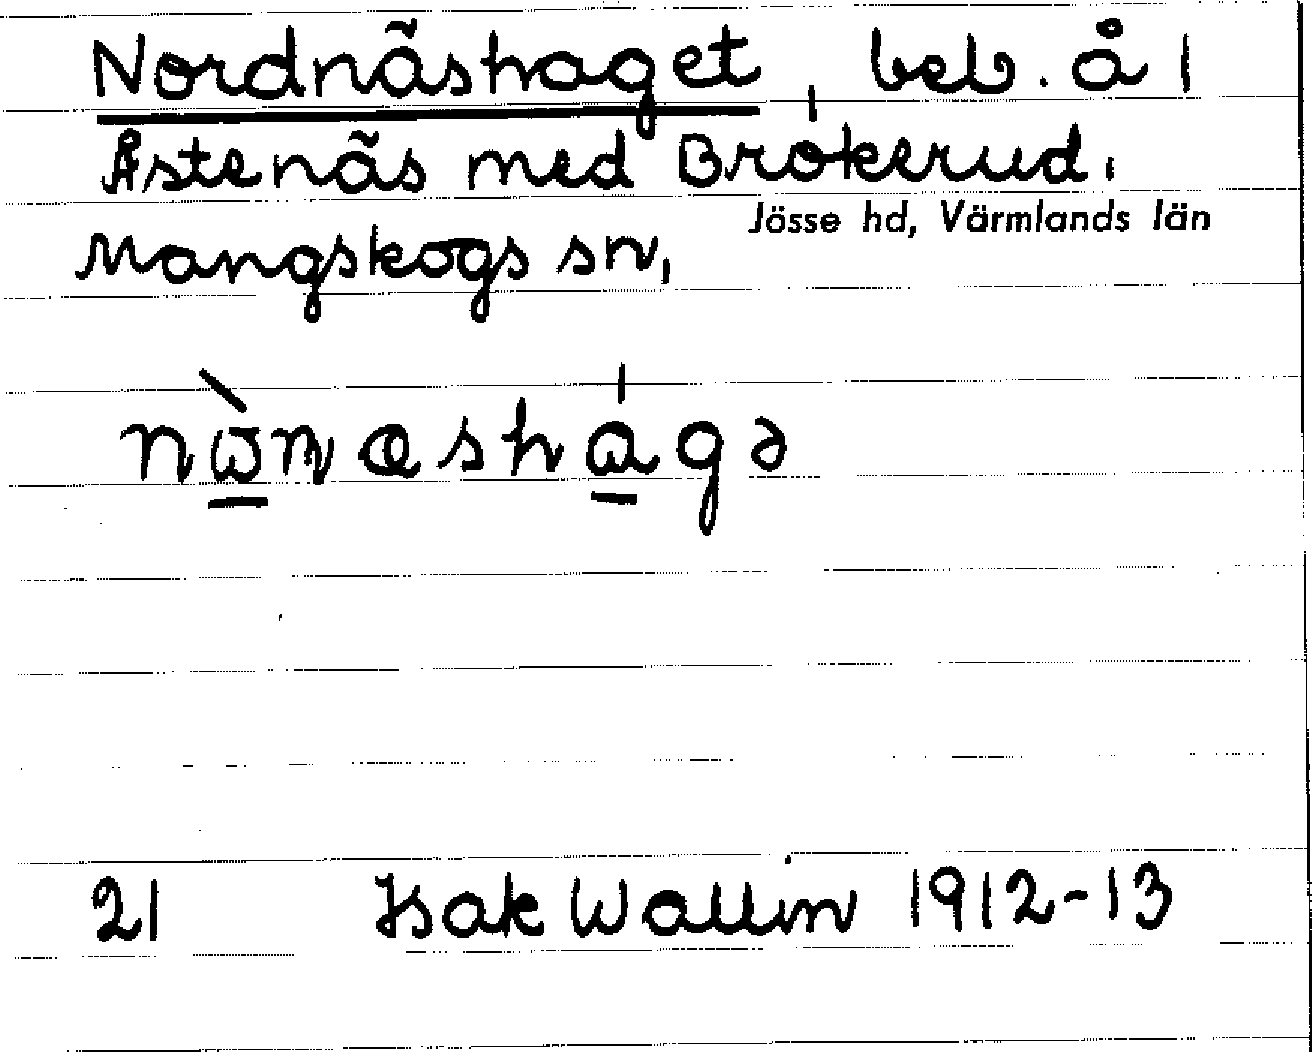 Nordnäshaget, beb. å 1
Åstenäs med Brökerud,
Jösse hd, Värmlands län
Mangskogs sn,
nὼnæshága
21 Isak Wallin 1912-13